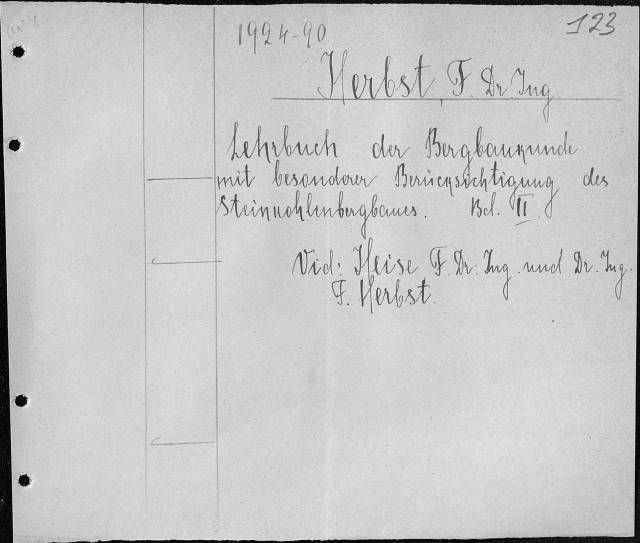 1924-90
123
Herbst, F. Dr. Ing
Lehrbuch der Bergbaukunde
mit besonderer Berücksichtigung des
Steinkohlenbergbaues. Bd. II.
Vid: Heise F. Dr. Ing. und Dr. Ing.
F. Herbst.